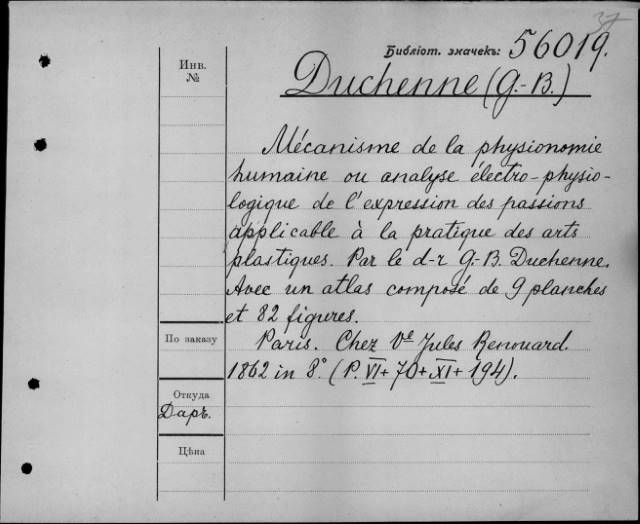 37
Библіот. значекъ: 56019.
Инв.
№
Duchenne (G.-B.)
Mécanisme de la physionomie
humaine ou analyse électro-physio-
logique de l'expression des passions
applicable à la pratique des arts
plastiques. Par le d-r G.-B. Duchenne.
Avec un atlas composé de 9 planches
et 82 figures.
По заказу
Paris. Chez Ve Jules Renouard.
1862 in 8°. (P. VI + 70 + XI + 194).
Откуда
Даръ.
Цѣна